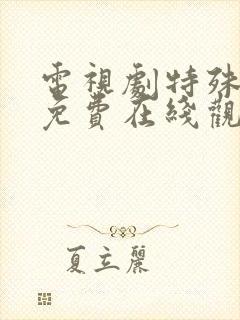 電視劇特殊
免費在綫觀
夏立麗